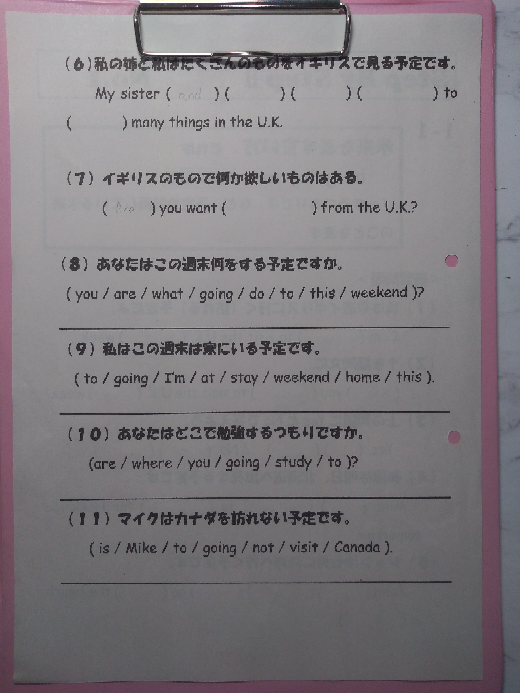 (6)私の姉と私はたくさんのものをイギリスで見る予定です。
My sister ( and ) ( ) ( ) ( ) to
( ) many things in the U.K.
(7) イギリスのもので何か欲しいものはある。
( Do ) you want ( ) from the U.K.?
(8) あなたはこの週末何をする予定ですか。
( you / are / what / going / do / to / this / weekend )?
(9) 私はこの週末は家にいる予定です。
( to / going / I'm / at / stay / weekend / home / this ).
(10) あなたはどこで勉強するつもりですか。
(are / where / you / going / study / to )?
(11) マイクはカナダを訪れない予定です。
( is / Mike / to / going / not / visit / Canada ).